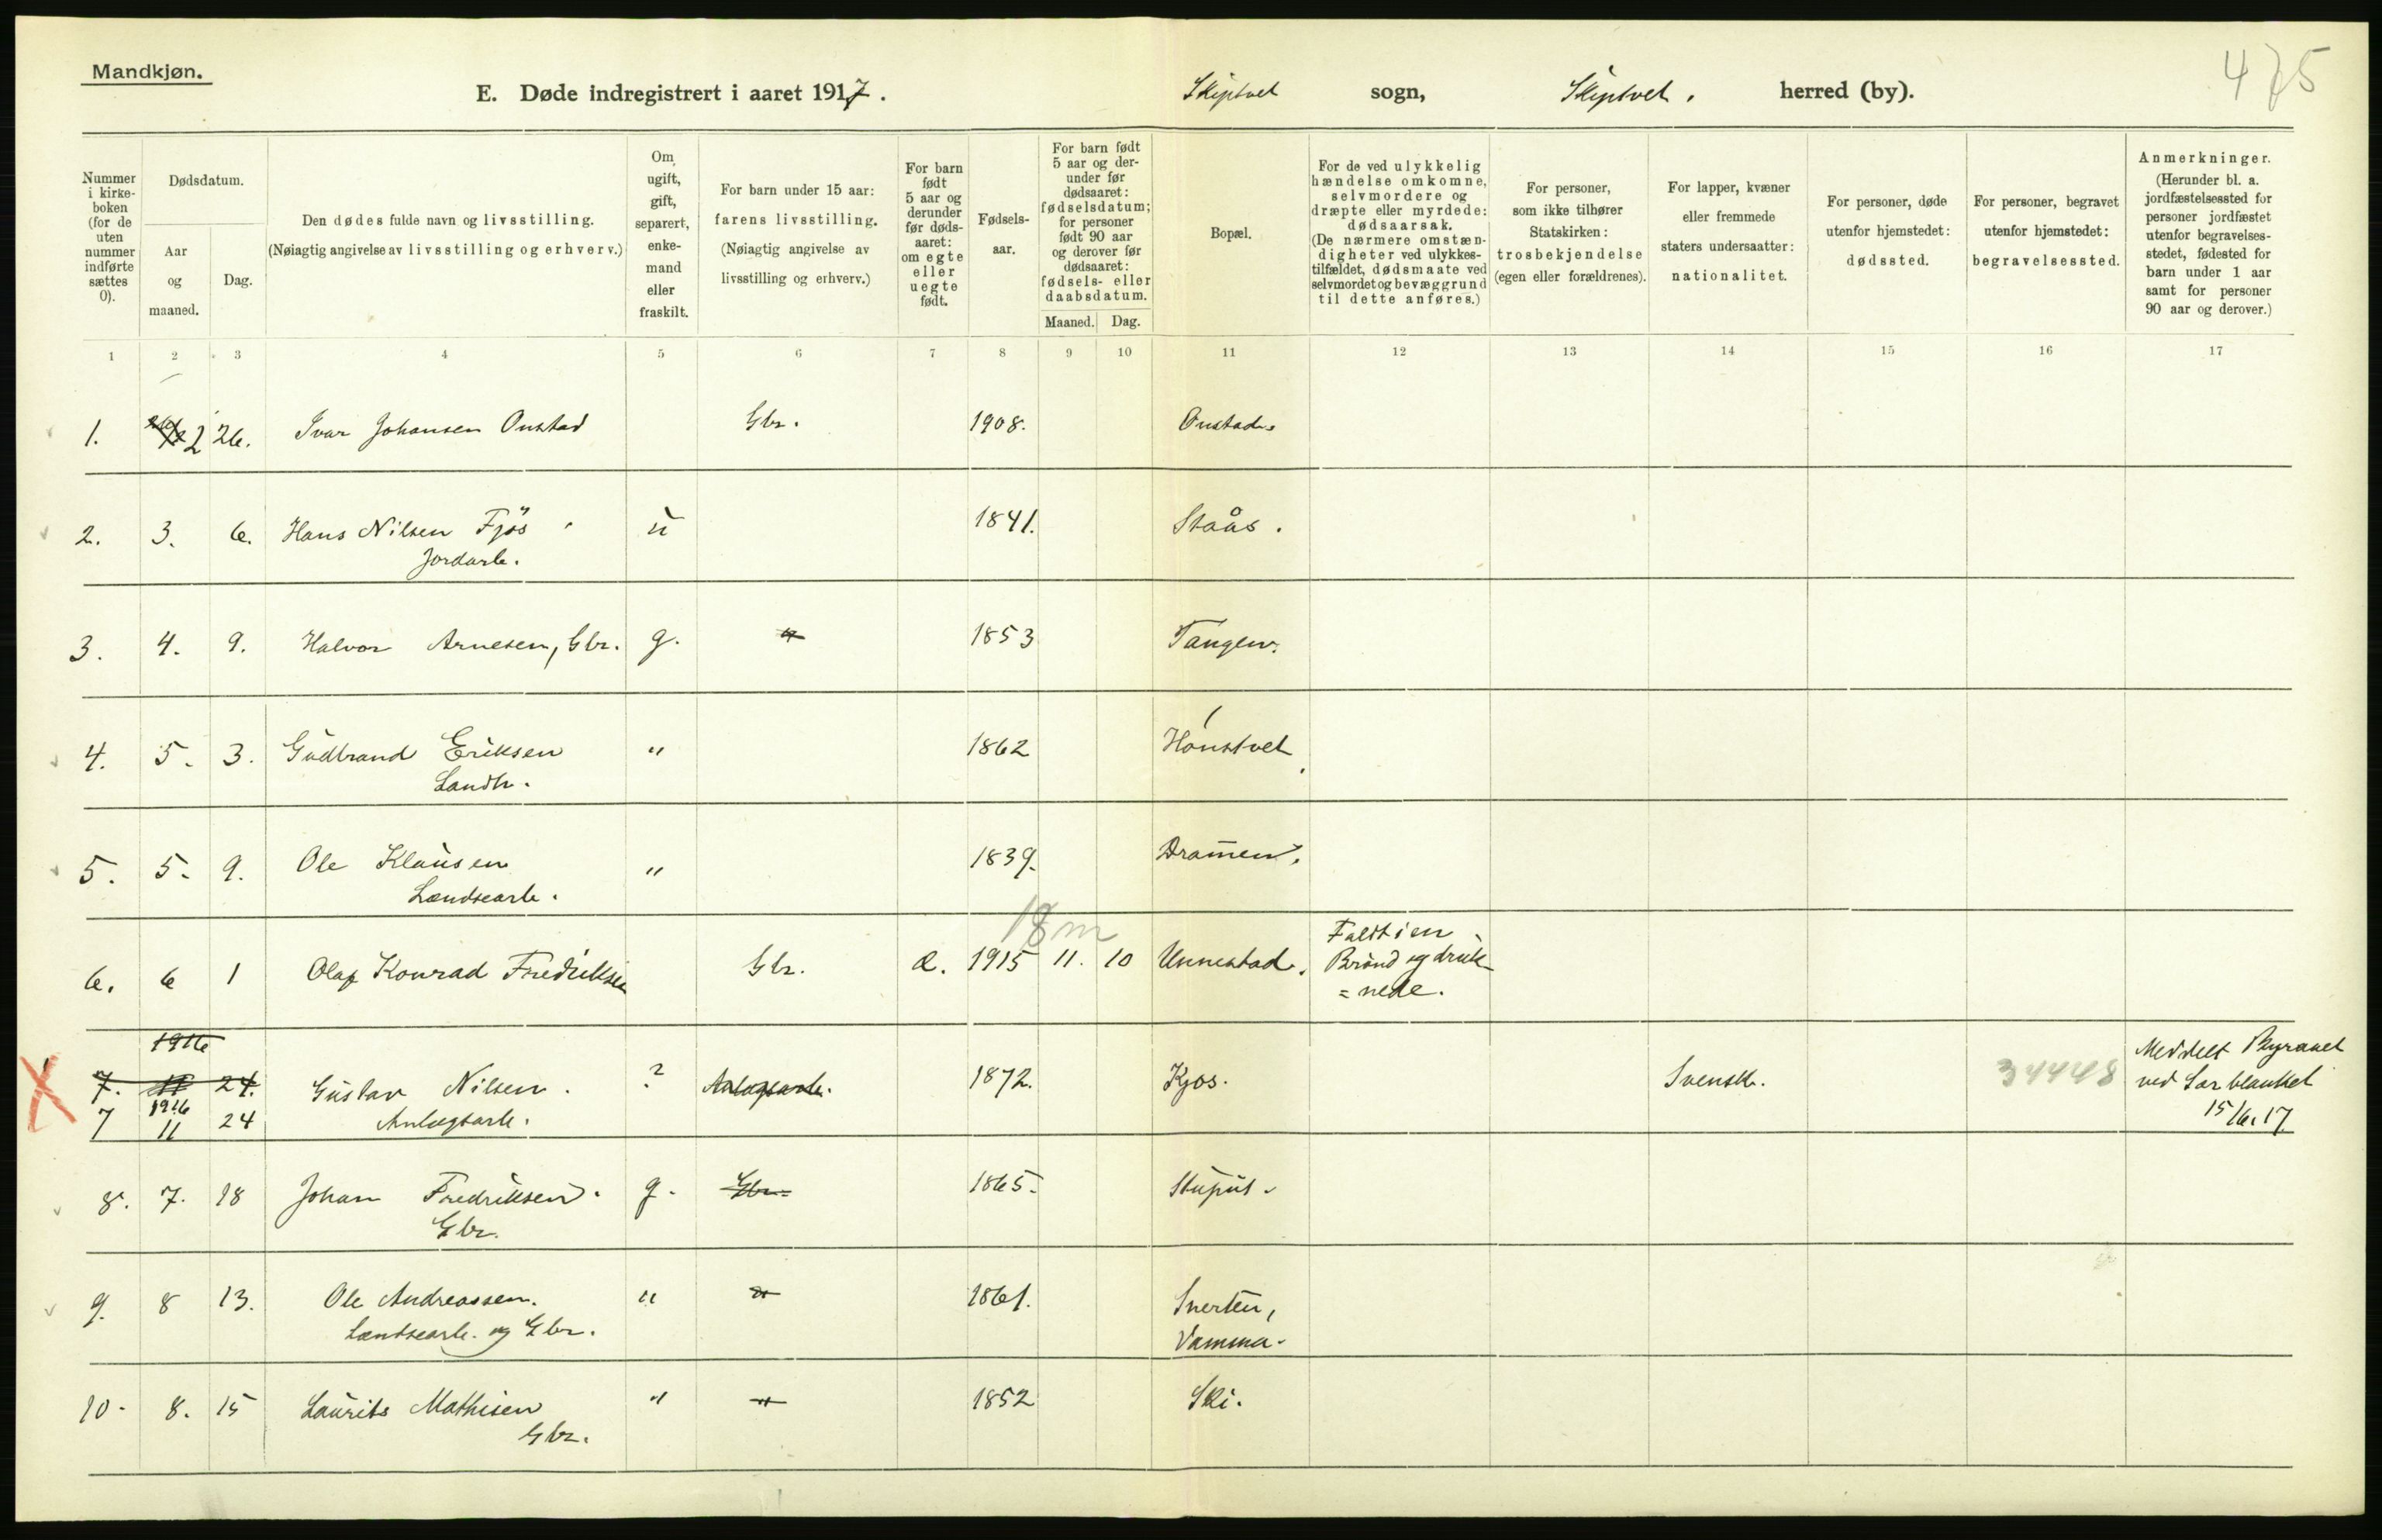 Mandkjøn.
475
E. Døde indregistrert i aaret 1917. Skiptvet sogn, Skiptvet. herred (by).
Nummer i kirke-boken (for de uten nummer indførte sættes 0).
Dødsdatum.
Aar og maaned.
Dag.
Den dødes fulde navn og livsstilling.
(Nøiagtig angivelse av livsstilling og erhverv.)
Om ugift, gift, separert, enke-mand eller fraskilt.
For barn under 15 aar:
farens livsstilling.
(Nøiagtig angivelse av livsstilling og erhverv.)
For barn født 5 aar og derunder før døds-aaret: om egte eller uegte født.
Fødsels-aar.
For barn født 5 aar og der-under før dødsaaret: fødselsdatum; for personer født 90 aar og derover før dødsaaret: fødsels- eller daabsdatum.
Maaned. Dag.
Bopæl.
For de ved ulykkelig hændelse omkomne, selvmordere og dræpte eller myrdede: dødsaarsak.
(De nærmere omstæn-digheter ved ulykkes-tilfældet, dødsmaate ved selvmordet og bevæggrund til dette anføres.)
For personer, som ikke tilhører Statskirken: trosbekjendelse (egen eller forældrenes).
For lapper, kvæner eller fremmede staters undersaatter: nationalitet.
For personer, døde utenfor hjemstedet: dødssted.
For personer, begravet utenfor hjemstedet: begravelsessted.
Anmerkninger.
(Herunder bl. a. jordfæstelsessted for personer jordfæstet utenfor begravelses-stedet, fødested for barn under 1 aar samt for personer 90 aar og derover.)
1 2 3 4 5 6 7 8 9 10 11 12 13 14 15 16 17
1. 2 26. Ivar Johansen Onstad Gbr. 1908. Onstad.
2. 3. 6. Hans Nilsen Fjøs u 1841. Staås.
Jordarb.
3. 4. 9. Halvor Arnesen, Gbr. g. " 1853 Tangen.
4. 5. 3. Gudbrand Eriksen " 1862 Hønstvet.
Landh.
5. 5. 9. Ole Klausen " 1839. Dramen.
Lændsearb.
18 m
6. 6 1 Olaf Konrad Fredriksen Gbr. Æ. 1915 11. 10 Unnestad. Faldt i en
Brønd og druk-
=nede.
1916
7. 11 24. Gustav Nilsen. ? Anlægsarb. 1872. Kjos. Svensk. 34448 Meddelt Byraaet
ved Sær blanket
15/6.17.
7 1916 11 24 Anlægsarb.
8. 7. 18 Johan Fredriksen. g. Gbr. 1865. Stuput.
Gbr.
9. 8 13. Ole Andreassen. " " 1861. Sverten,
Lændsearb. og Gbr. Vamma.
10. 8. 15 Laurits Mathisen " " 1852 Ski.
Gbr.